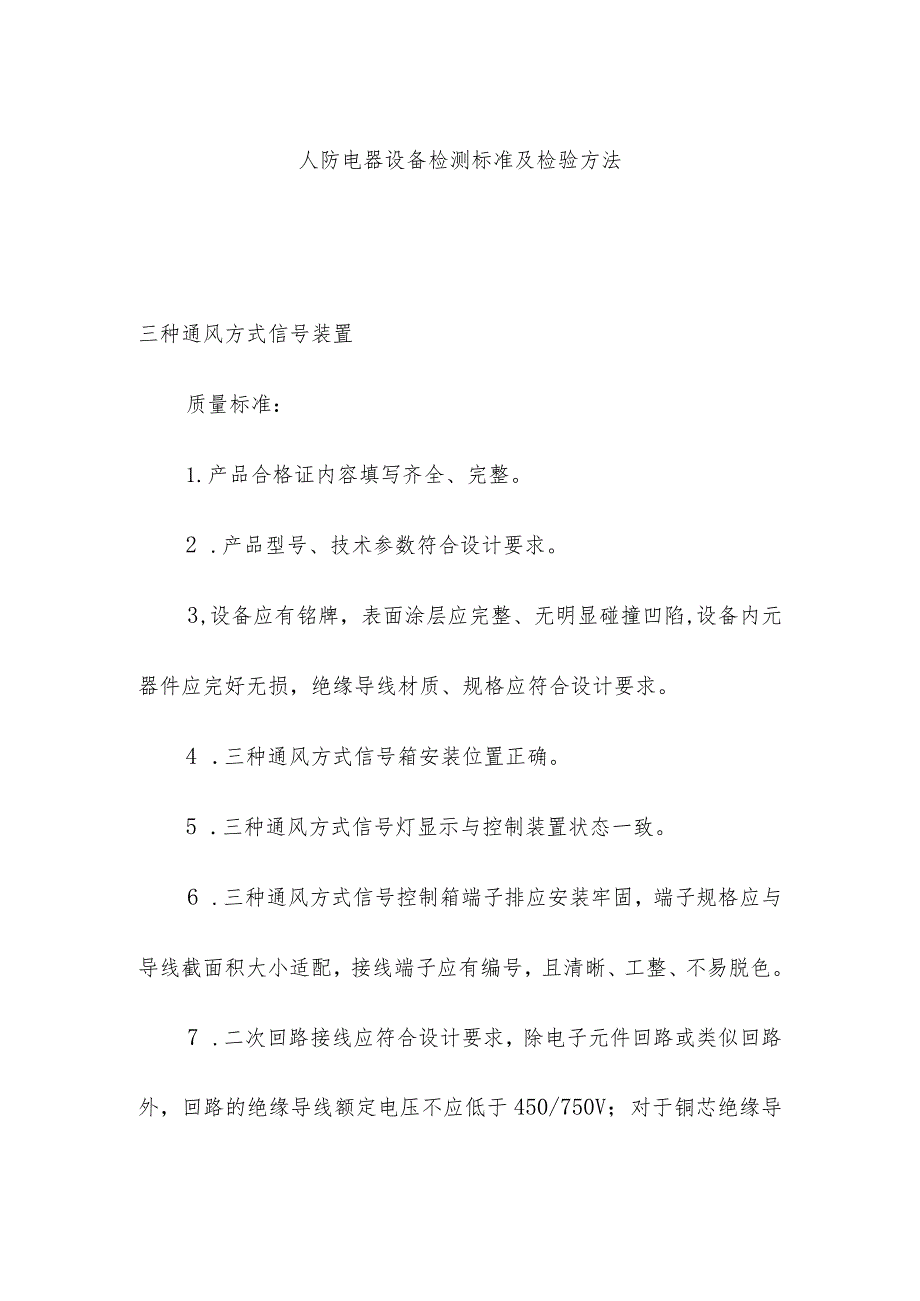 人防电器设备检测标准及检验方法
三种通风方式信号装置
质量标准：
1.产品合格证内容填写齐全、完整。
2 .产品型号、技术参数符合设计要求。
3,设备应有铭牌，表面涂层应完整、无明显碰撞凹陷,设备内元
器件应完好无损，绝缘导线材质、规格应符合设计要求。
4 .三种通风方式信号箱安装位置正确。
5 .三种通风方式信号灯显示与控制装置状态一致。
6 .三种通风方式信号控制箱端子排应安装牢固，端子规格应与
导线截面积大小适配，接线端子应有编号，且清晰、工整、不易脱色。
7 .二次回路接线应符合设计要求，除电子元件回路或类似回路
外，回路的绝缘导线额定电压不应低于450/750V；对于铜芯绝缘导